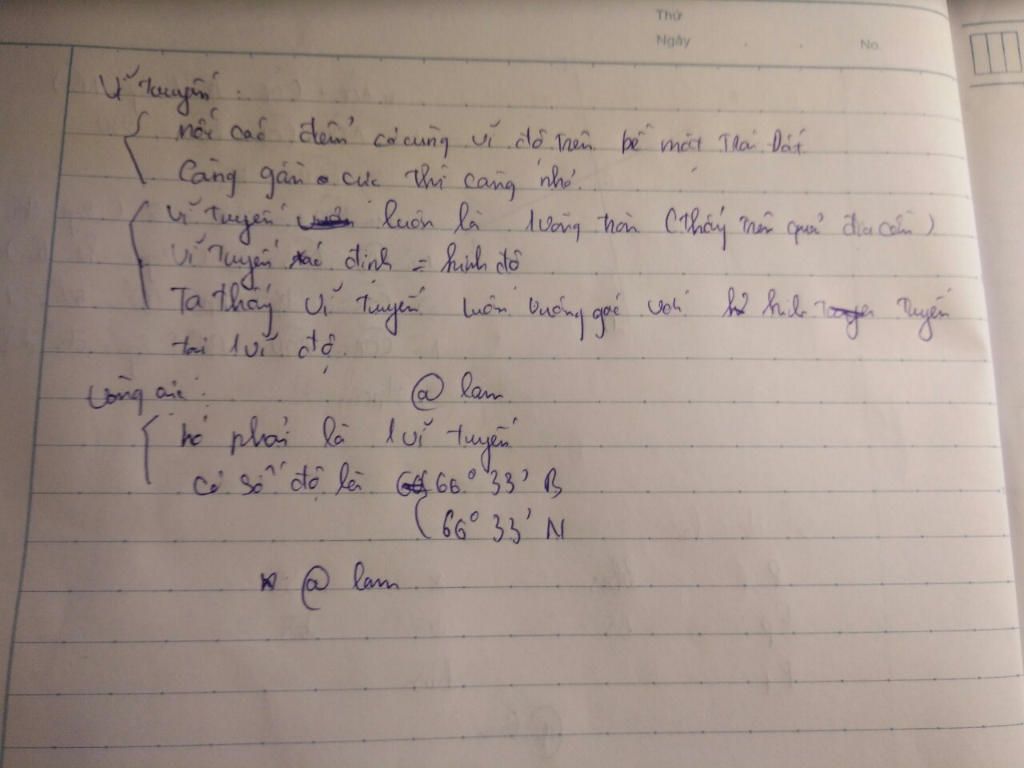 Thứ
Ngày No.
Vĩ tuyến :
nối các điểm có cùng vĩ độ trên bề mặt Trái Đất
Càng gần cực thì càng nhỏ.
Vĩ tuyến luôn là 1 vòng tròn (thấy trên quả địa cầu)
Vĩ tuyến xác định = kinh độ
Ta thấy vĩ tuyến luôn vuông góc với kinh tuyến
tại 1 vĩ độ.
Vòng cực :
@ lam
nó phải là 1 vĩ tuyến
Có số độ là 66° 33' B
66° 33' N
@ lam